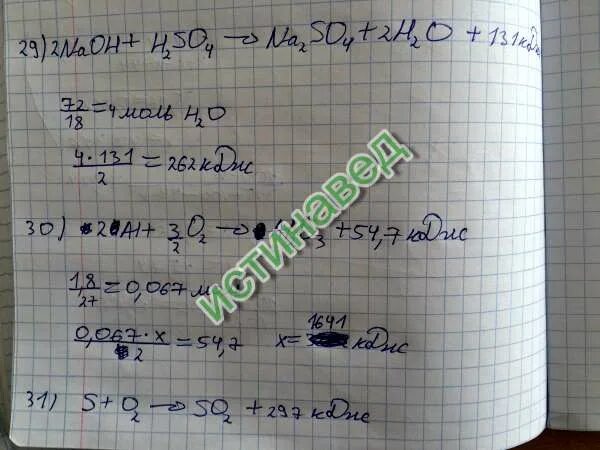 29) 2NaOH + H₂SO₄ → Na₂SO₄ + 2H₂O + 131 кДж
72/18 = 4 моль H₂O
4·131/2 = 262 кДж
30) 2Al + 3/2 O₂ → ₃ + 54,7 кДж
1,8/27 = 0,067 м
0,067·x/2 = 54,7 x = 1641 кДж
31) S + O₂ → SO₂ + 297 кДж
истинавед